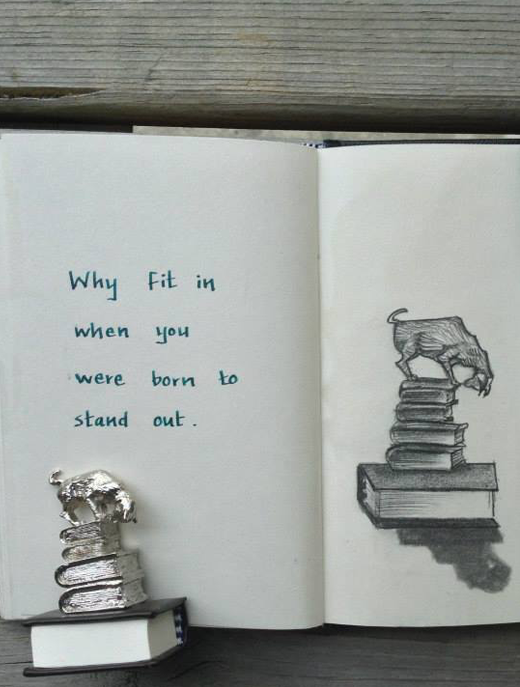 Why Fit in
when you
were born to
stand out.